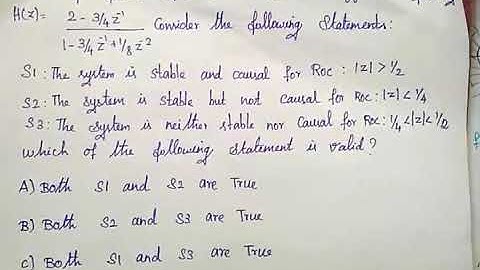 H(z)= 2 - 3/4 z⁻¹ / 1 - 3/4 z⁻¹ + 1/8 z⁻² Consider the following Statements:
S1: The system is stable and causal for ROC: |z| > 1/2
S2: The system is stable but not causal for ROC: |z| < 1/4
S3: The system is neither stable nor causal for ROC: 1/4 < |z| < 1/2
which of the following statement is valid?
A) Both S1 and S2 are True
B) Both S2 and S3 are True
C) Both S1 and S3 are True